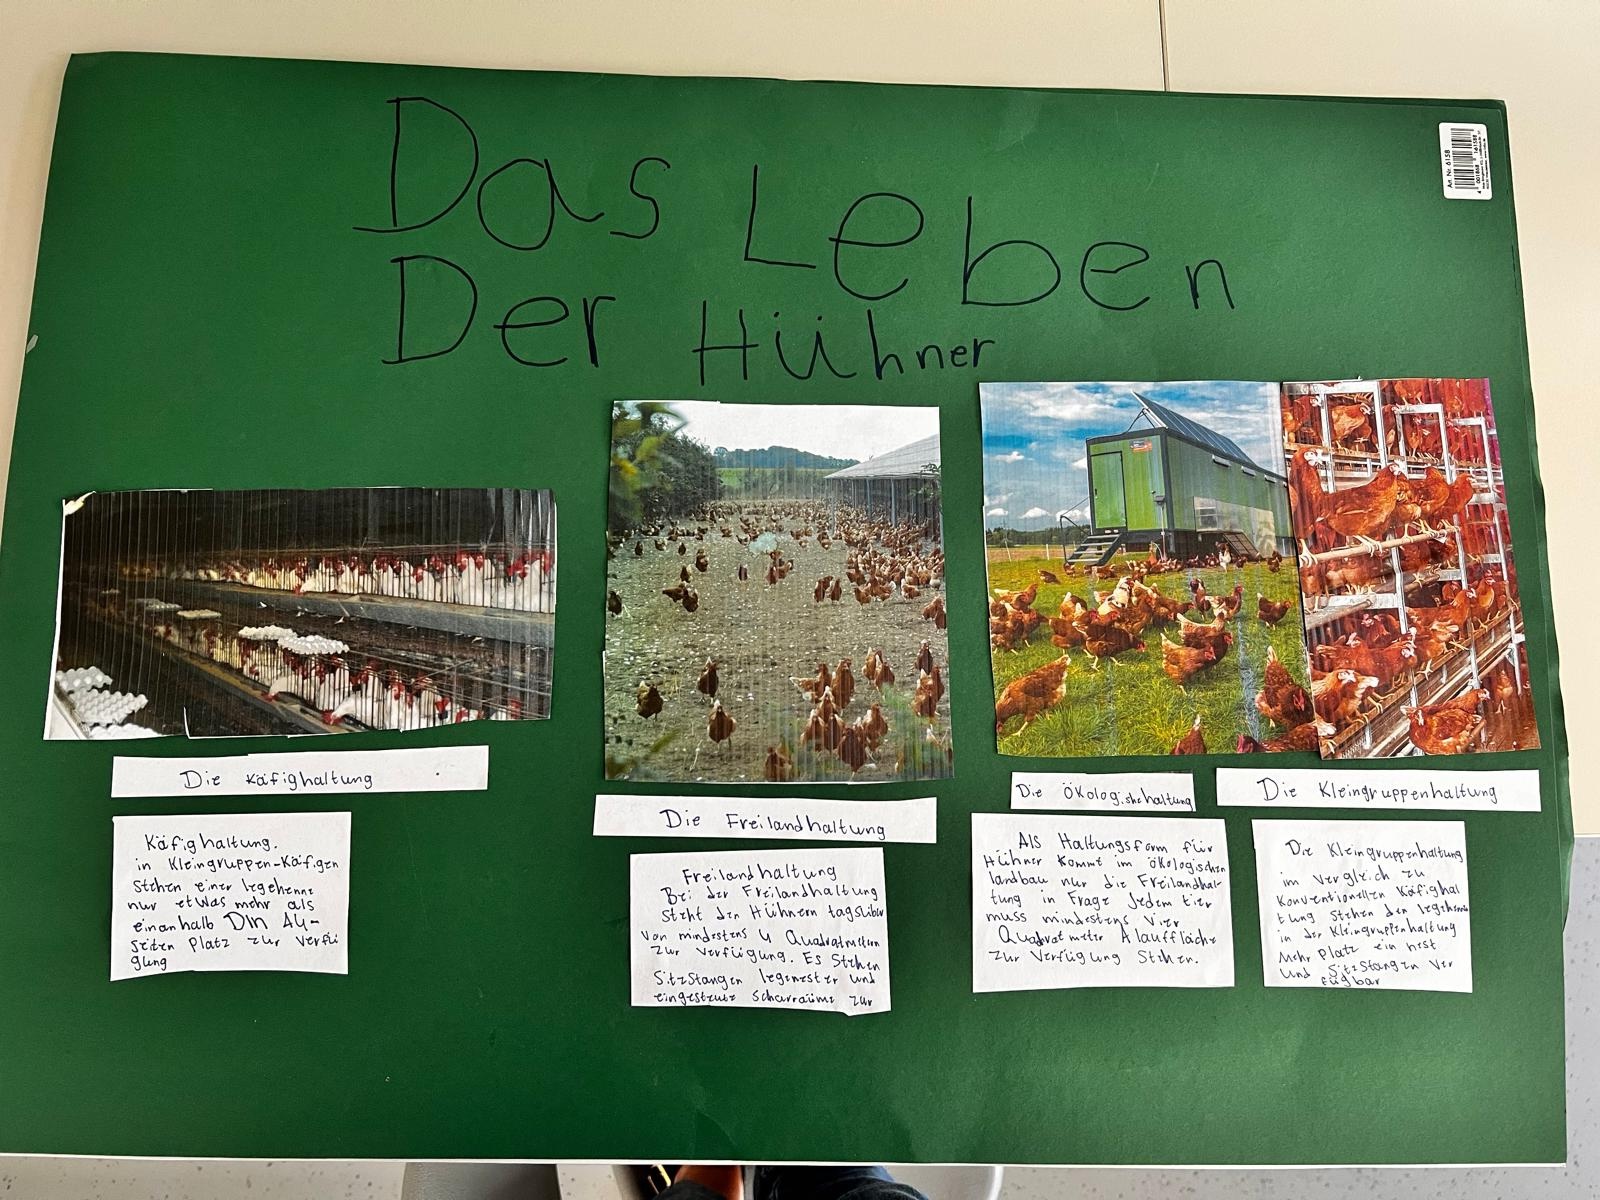 Das Leben
Der Hühner
Art. Nr. 6158
Die Käfighaltung
Die Freilandhaltung
Die Ökologishehaltung
Die Kleingruppenhaltung
Käfighaltung.
in Kleingruppen-Käfigen
stehen einer legehenne
nur etwas mehr als
einanhalb Din A4-
seiten Platz zur verfü
gung
Freilandhaltung
Bei der Freilandhaltung
steht den Hühnern tagsüber
von mindestens 4 Quadratmetern
zur verfügung. Es Stehen
SitzStangen legenester und
eingestreute Scharräume zur
Als Haltungsform für
Hühner kommt im ökologischen
landbau nur die Freilandhal-
tung in Frage Jedem tier
muss mindestens Vier
Quadratmeter Alauffläche
zur Verfügung Stehen.
Die Kleingruppenhaltung
im vergleich zu
Konventionellen Käfighal
tung stehen den legehennen
in der Kleingruppenhaltung
Mehr Platz ein nest
und SitzStangen ver
fügbar